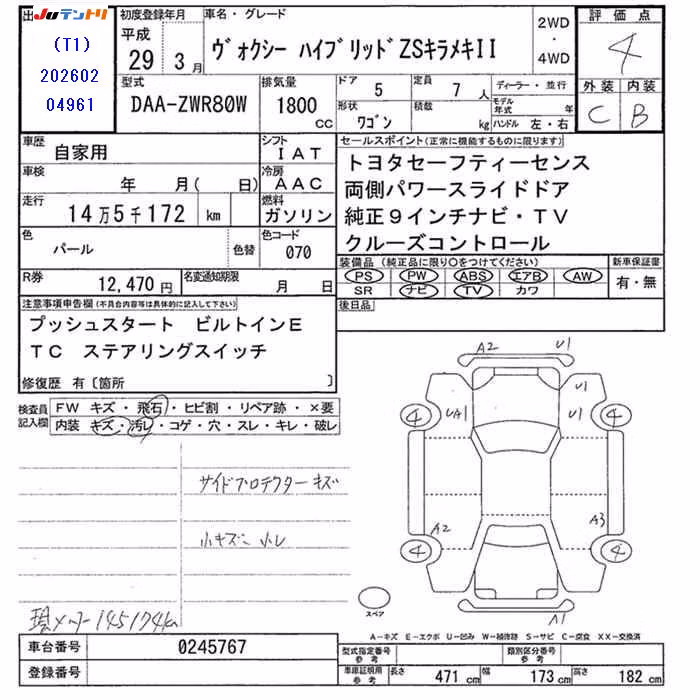 出 Juテントリ
（T1）
202602
04961
初度登録年月
平成
29 3月
車名・グレード
ヴォクシー ハイブリッドZSキラメキII
2WD
・
4WD
評価点
4
外装 内装
C B
型式
DAA-ZWR80W
排気量
1800
CC
ドア 5
定員 7 人
形状 ワゴン
積載 kg
ディーラー・並行
モデル年式 年
ハンドル 左・右
車歴 自家用
シフト IAT
車検 年 月( 日)
冷房 AAC
走行 14万5千172 km
燃料 ガソリン
色 パール
色替
色コード 070
R券 12,470円
名変通知期限 月 日
セールスポイント(正常に機能するものに限ります)
トヨタセーフティーセンス
両側パワースライドドア
純正9インチナビ・TV
クルーズコントロール
装備品(純正品に限り○をつけてください)
PS PW ABS エアB AW
SR ナビ TV カワ
新車保証書
有・無
後日品
注意事項申告欄(不具合内容等は具体的に記入して下さい)
プッシュスタート ビルトインE
TC ステアリングスイッチ
修復歴 有〔箇所 〕
検査員記入欄
FW キズ・飛石・ヒビ割・リペア跡・×要
内装 キズ・汚レ・コゲ・穴・スレ・キレ・破レ
サイドプロテクターキズ
小キズ 小レ
現メーター145174km
A2 U1
UA1 U1 U1
4 4
A2 A3
4 4
スペア
A1
A-キズ E-エクボ U-凹み W-補修跡 S-サビ C-腐食 XX-交換済
車台番号 0245767
登録番号
型式指定番号 参考
類別区分番号 参考
車庫証明用 参考
長さ 471 cm
幅 173 cm
高さ 182 cm